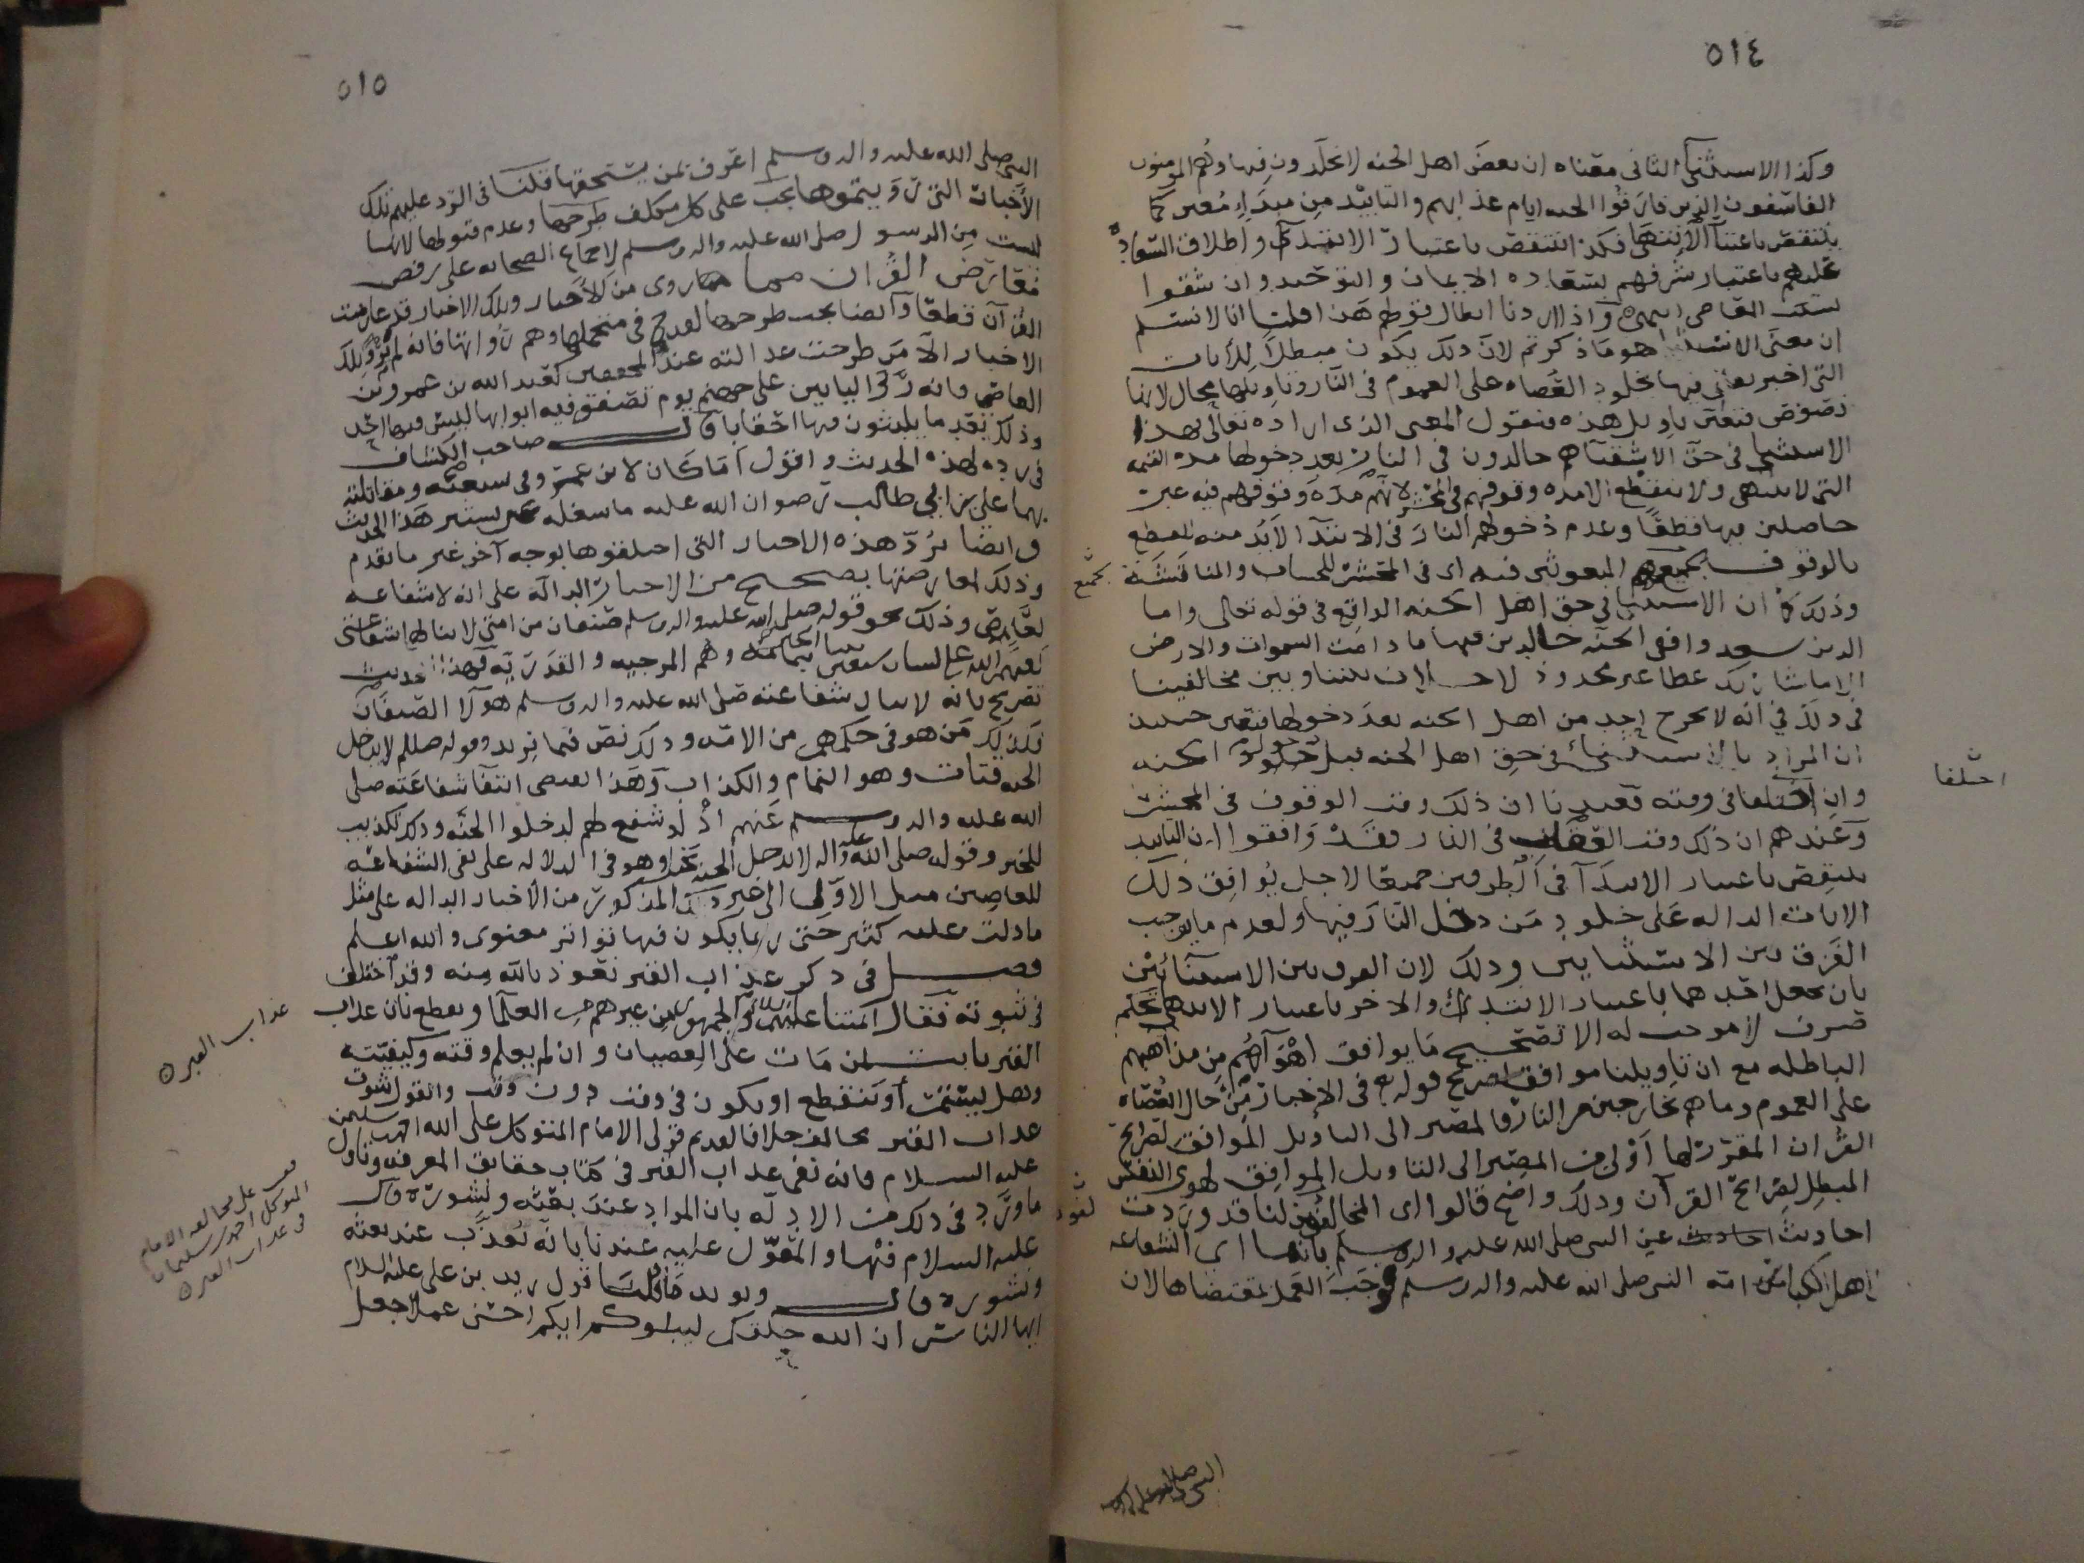 ٥١٤
وكذا الاستثنى الثانى معناه ان بعض اهل الجنه لا يخلدون فيها وهم المومنون
الفاسقون الذين فارقوا الجنه ايام عذابهم والتابيد من مبدإ معين كما
ينتقض باعتبار الانتهى فكذا ينتقض باعتبار الابتدآ واطلاق السعاده
عليهم باعتبار شرفهم بسعاده الايمان والتوحيد وان شقوا
بسبب المعاصى واذا اردنا ابطال قولهم هذا قلنا انا لا نسلم
ان معنى الاستثنا هو ما ذكرتم لان ذلك يكون مبطلا للآيات
التى اخبر تعالى فيها بخلود العصاه على العموم فى النار وتاويلها محال لانها
نصوص فتعين تاويل هذه فنقول المعنى الذى اراده تعالى بهذا
الاستثنى فى حق الاشقيآ هم خالدون فى النار بعد دخولها مدة القيمه
التى لا تنتهى ولا تنقطع الا مده وقوفهم فى المحشر لانهم مدة وقوفهم فيه غير
حاصلين فيها قطعا وعدم دخولهم النار فى الابتدآ لا بد منه للقطع
بالوقوف بجميع المبعوثين فيه اى فى المحشر للحساب والمناقشة
بجميع
وذلك كما ان الاستثنا فى حق اهل الجنه الواقع فى قوله تعالى واما
الذين سعدوا ففى الجنه خالدين فيها ما دامت السموات والارض
الا ما شا ربك عطا غير مجذوذ لا خلاف بيننا وبين مخالفينا
فى ذلك فى انه لا يخرج احد من اهل الجنه بعد دخولها فتعين حينئذ
ان المراد بالاستثنى فى حق اهل الجنه قبل دخول الجنه
وان اختلفنا فى وقته فعندنا ان ذلك وقت الوقوف فى المحشر
اختلفنا
وعندهم ان ذلك وقت العقاب فى النار فقد وافقوا ان التابيد
ينتقض باعتبار الابتدآ فى الطرفين جميعا لاجل يوافق ذلك
الايات الداله على خلود من دخل النار فيها ولعدم ما يوجب
الفرق بين الاستثنايين وذلك لان الفرق بين الاستثنائين
بان يجعل احدهما باعتبار الابتدى والاخر باعتبار الانتهى تحكم
صرف لا موجب له الا تصحيح ما يوافق اهوآهم من مذاهبهم
الباطله مع ان تاويلنا موافق لصريح قوله تع فى الاخبار عن حال العصاه
على العموم وما هم بخارجين من النار فالمصير الى التاويل الموافق لصرايح
القرآن المقرر لها اولى من المصير الى التاويل الموافق لهوى النفس
المبطل لصرايح القرآن وذلك واضح قالوا اى المخالفون لنا قد وردت
احاديث عن النبى صلى الله عليه واله وسلم بانها اى الشفاعه
لاهل الكبائر من امة النبى صلى الله عليه واله وسلم فوجب العمل بمقتضاها لان
٥١٥
النبى صلى الله عليه واله وسلم اعرف بمن يستحقها قلنا فى الرد عليهم تلك
الأخبار التى رويتموها يجب على كل مكلف طرحها وعدم قبولها لانها
ليست من الرسول صلى الله عليه واله وسلم لاجماع الصحابه على رفض
معارض القرآن مما روى من الأخبار وتلك الاخبار قد عارضت
القرآن قطعا وايضا يجب طرحها لقدح فى متحمليها وهم رواتها فانه لم يرو تلك
الاخبار الا من طرحت عدالته عند المحققين كعبد الله بن عمرو بن
العاص فانه روى لياتين على جهنم يوم تصفق فيه ابوابها ليس فيها احد
وذلك بعد ما يلبثون فيها احقابا قال صاحب الكشاف
فى رده لهذا الحديث واقول اما كان لابن عمرو فى سيفيه ومقاتلته
بهما على بن ابى طالب رضوان الله عليه ما يشغله عن تسيير هذا الحديث
وايضا نرد هذه الاخبار التى اختلقوها بوجه آخر غير ما تقدم
وذلك لمعارضتها بصحيح من الاخبار الدالة على انه لا شفاعه
لعاص وذلك نحو قوله صلى الله عليه واله وسلم صنفان من امتى لا تنالهم شفاعتى
لعنهم الله على لسان سبعين نبيا وهم المرجيه والقدريه فهذا الحديث
تصريح بانه لا ينال شفاعته صلى الله عليه واله وسلم هولآ الصنفان
فكذلك من هو فى حكمهم من الامه وذلك نص فيما نريد وقوله صلى لا يدخل
الجنه قتات وهو النمام والكذاب وهذا يقتضى انتفآ شفاعته صلى
الله عليه واله وسلم عنهم اذ لو شفع لهم لدخلوا الجنه وذلك تكذيب
للخبر وقوله صلى الله عليه وآله لا يدخل الجنة وهو فى الدلاله على نفى الشفاعه
للعاصين مثل الاول الى غير ذلك المذكور من الأخبار الداله على مثل
ما دلت عليه كثير حتى ربما يكون فيها تواتر معنوى والله اعلم
فصل فى ذكر عذاب القبر نعوذ بالله منه وقد اختلف
فى ثبوته فقال ائمتنا عليهم السلام والجمهور من غيرهم من العلما ونقطع بان عذاب
عذاب القبر
القبر ثابت لمن مات على العصيان وان لم يعلم وقته وكيفيته
وهل يستمر أو ينقطع او يكون فى وقت دون وقت والقول بثبوت
عذاب القبر مخالف خلافا لقديم قولى الامام المتوكل على الله احمد بن سليمن
عليه السلام فانه نفى عذاب القبر فى كتاب حقائق المعرفه وتاول
قف على مخالفه الامام
المتوكل احمد بن سليمان
فى عذاب القبر
ما ورد فى ذلك من الادله بان المراد عند بعثه ونشوره قال
عليه السلام فيها والمعول عليه عندنا بانه يعذب عند بعثه
ونشوره قال ويويد ما قلنا قول زيد بن على عليه السلام
ايها الناس ان الله خلقكم ليبلوكم ايكم احسن عملا جعل